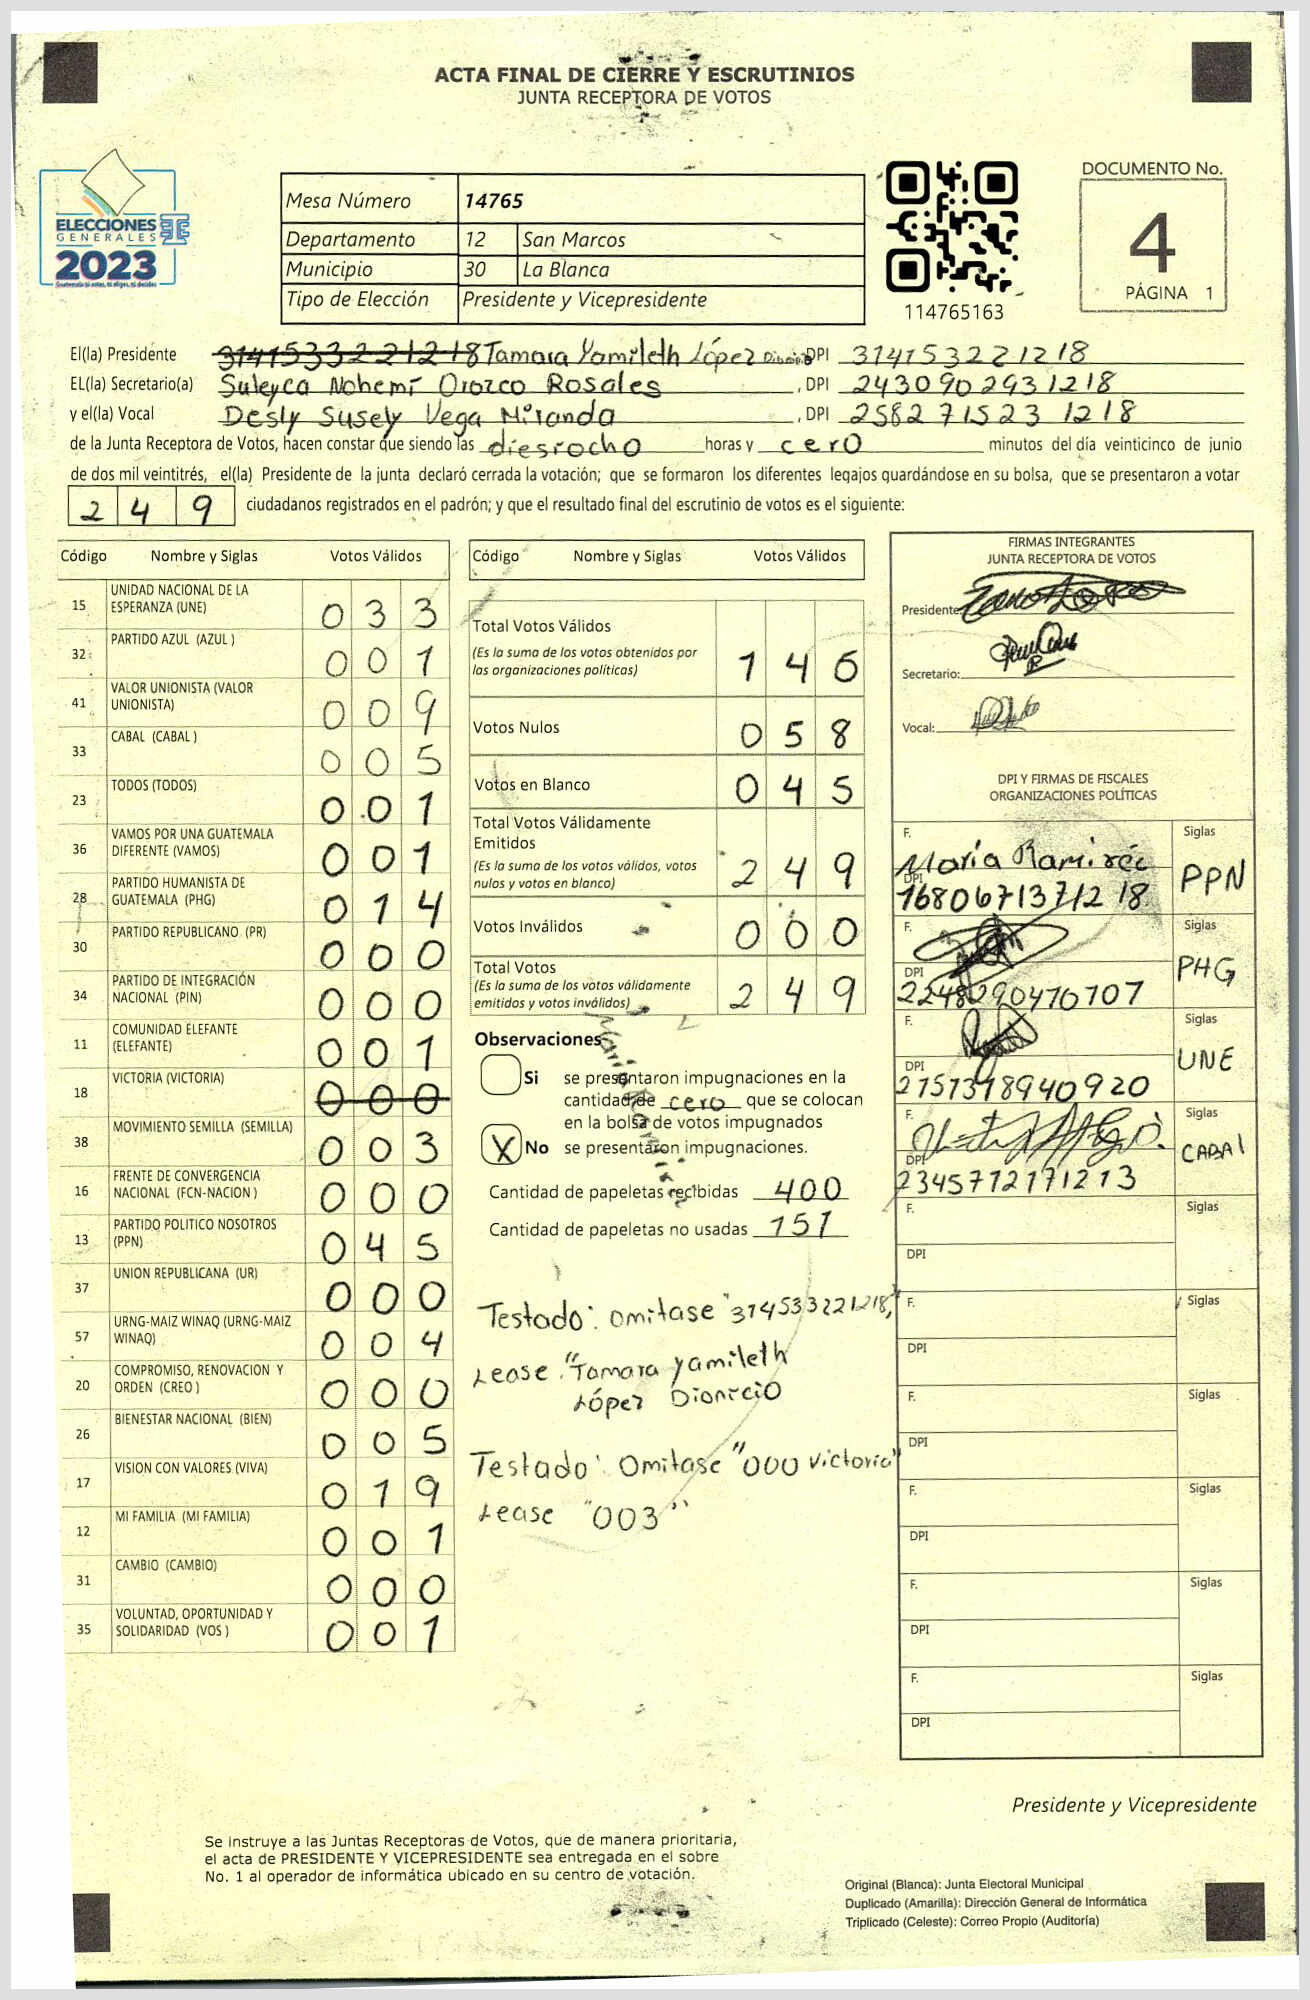 ACTA FINAL DE CIERRE Y ESCRUTINIOS
JUNTA RECEPTORA DE VOTOS
ELECCIONES
GENERALES
2023
Guatemala tú votas, tú eliges, tú decides
Mesa Número 14765
Departamento 12 San Marcos
Municipio 30 La Blanca
Tipo de Elección Presidente y Vicepresidente
114765163
DOCUMENTO No.
4
PÁGINA 1
El(la) Presidente Tamara Yamileth López DPI 314153221218
EL(la) Secretario(a) Suleyca Nohemí Orozco Rosales , DPI 2430902931218
y el(la) Vocal Desly Susely Vega Miranda , DPI 2582715231218
de la Junta Receptora de Votos, hacen constar que siendo las diesiocho horas y cero minutos del día veinticinco de junio
de dos mil veintitrés, el(la) Presidente de la junta declaró cerrada la votación; que se formaron los diferentes legajos guardándose en su bolsa, que se presentaron a votar
249 ciudadanos registrados en el padrón; y que el resultado final del escrutinio de votos es el siguiente:
Código Nombre y Siglas Votos Válidos
15 UNIDAD NACIONAL DE LA ESPERANZA (UNE) 033
32 PARTIDO AZUL (AZUL ) 001
41 VALOR UNIONISTA (VALOR UNIONISTA) 009
33 CABAL (CABAL ) 005
23 TODOS (TODOS) 001
36 VAMOS POR UNA GUATEMALA DIFERENTE (VAMOS) 001
28 PARTIDO HUMANISTA DE GUATEMALA (PHG) 014
30 PARTIDO REPUBLICANO (PR) 000
34 PARTIDO DE INTEGRACIÓN NACIONAL (PIN) 000
11 COMUNIDAD ELEFANTE (ELEFANTE) 001
18 VICTORIA (VICTORIA) 000
38 MOVIMIENTO SEMILLA (SEMILLA) 003
16 FRENTE DE CONVERGENCIA NACIONAL (FCN-NACION ) 000
13 PARTIDO POLITICO NOSOTROS (PPN) 045
37 UNION REPUBLICANA (UR) 000
57 URNG-MAIZ WINAQ (URNG-MAIZ WINAQ) 004
20 COMPROMISO, RENOVACION Y ORDEN (CREO ) 000
26 BIENESTAR NACIONAL (BIEN) 005
17 VISION CON VALORES (VIVA) 019
12 MI FAMILIA (MI FAMILIA) 001
31 CAMBIO (CAMBIO) 000
35 VOLUNTAD, OPORTUNIDAD Y SOLIDARIDAD (VOS ) 001
Código Nombre y Siglas Votos Válidos
Total Votos Válidos
(Es la suma de los votos obtenidos por
las organizaciones políticas) 146
Votos Nulos 058
Votos en Blanco 045
Total Votos Válidamente
Emitidos
(Es la suma de los votos válidos, votos
nulos y votos en blanco) 249
Votos Inválidos 000
Total Votos
(Es la suma de los votos válidamente
emitidos y votos inválidos) 249
Observaciones
Si se presentaron impugnaciones en la
cantidad de cero que se colocan
en la bolsa de votos impugnados
X No se presentaron impugnaciones.
Cantidad de papeletas recibidas 400
Cantidad de papeletas no usadas 151
Testado: omitase "314533221218,"
Lease "Tamara Yamileth
López Dionicio
Testado: Omitase "000 victoria"
Lease "003"
FIRMAS INTEGRANTES
JUNTA RECEPTORA DE VOTOS
Presidente:
Secretario:
Vocal:
DPI Y FIRMAS DE FISCALES
ORGANIZACIONES POLÍTICAS
F. María Ramiréz Siglas PPN
DPI 1680671371218
F. Siglas PHG
DPI 2248290470707
F. Siglas UNE
DPI 2757318940920
F. Siglas CABAL
DPI 2345712171213
F. Siglas
DPI
F. Siglas
DPI
F. Siglas
DPI
F. Siglas
DPI
F. Siglas
DPI
F. Siglas
DPI
Presidente y Vicepresidente
Se instruye a las Juntas Receptoras de Votos, que de manera prioritaria,
el acta de PRESIDENTE Y VICEPRESIDENTE sea entregada en el sobre
No. 1 al operador de informática ubicado en su centro de votación.
Original (Blanca): Junta Electoral Municipal
Duplicado (Amarilla): Dirección General de Informática
Triplicado (Celeste): Correo Propio (Auditoría)